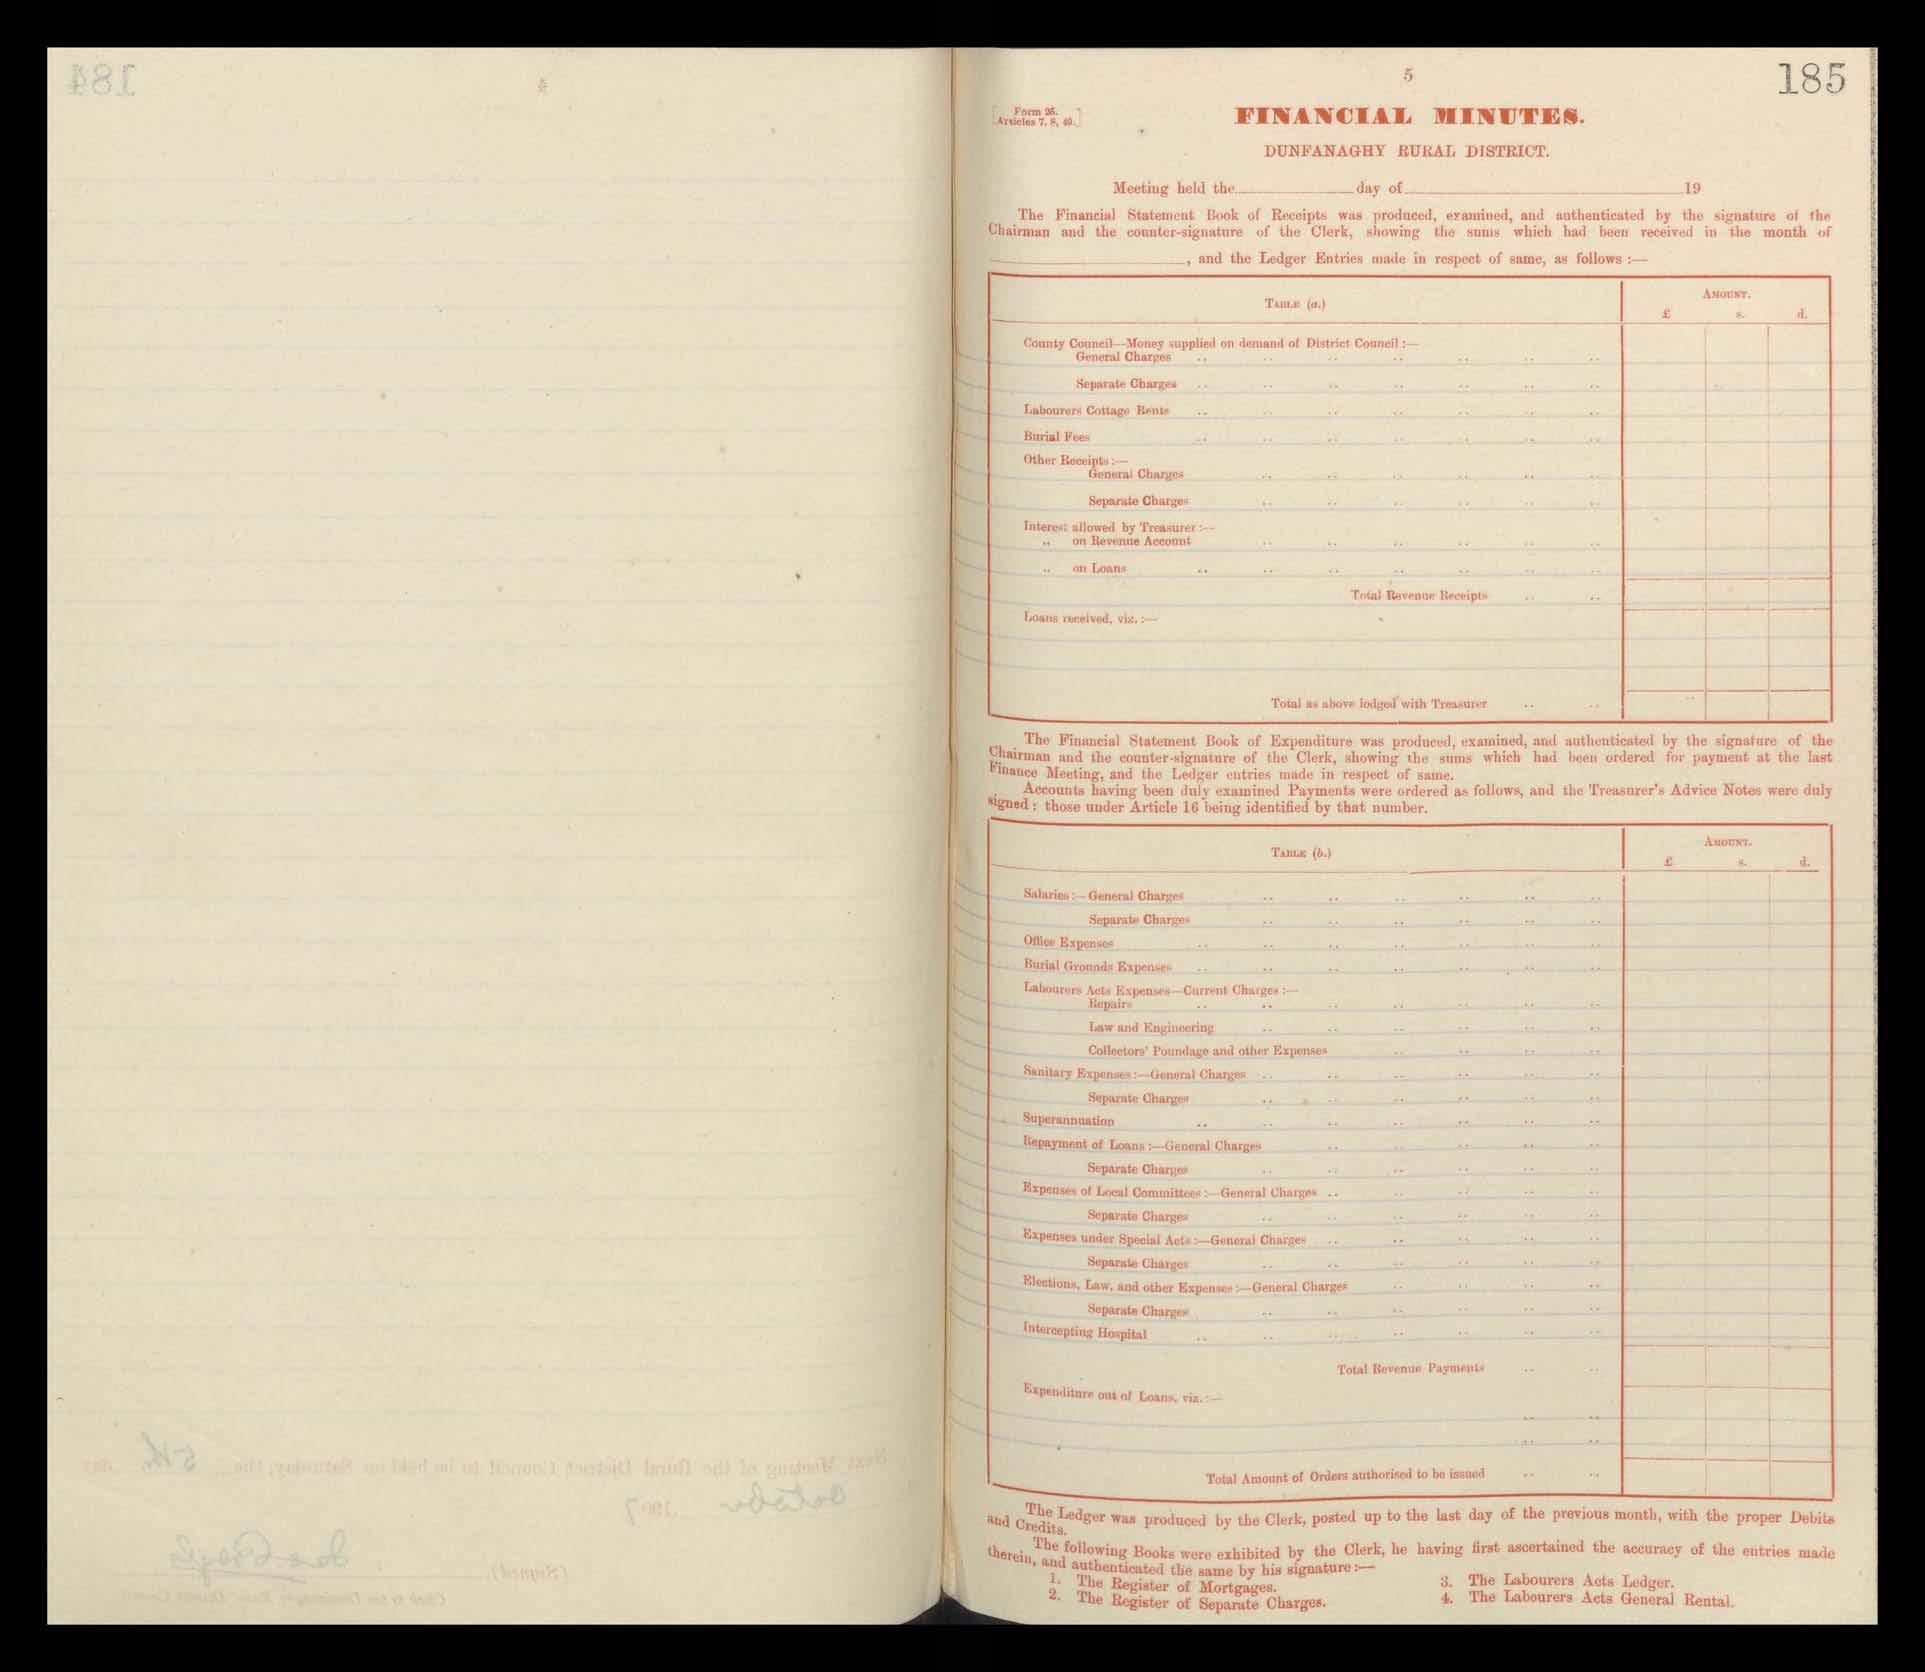 184
4
Next Meeting of the Rural District Council to be held on Saturday, the 5th day
October 1907
(Signed),
Clerk to the Dunfanaghy Rural District Council.
5
185
[Form 26.
Articles 7, 8, 40.]
FINANCIAL MINUTES.
DUNFANAGHY RURAL DISTRICT.
Meeting held the day of 19
The Financial Statement Book of Receipts was produced, examined, and authenticated by the signature of the
Chairman and the counter-signature of the Clerk, showing the sums which had been received in the month of
, and the Ledger Entries made in respect of same, as follows :—
TABLE (a.)
AMOUNT.
£ s. d.
County Council—Money supplied on demand of District Council :—
General Charges .. .. .. .. .. .. ..
Separate Charges .. .. .. .. .. .. ..
Labourers Cottage Rents .. .. .. .. .. .. ..
Burial Fees .. .. .. .. .. .. ..
Other Receipts :—
General Charges .. .. .. .. .. ..
Separate Charges .. .. .. .. .. ..
Interest allowed by Treasurer :—
„ on Revenue Account .. .. .. .. .. ..
„ on Loans .. .. .. .. .. .. ..
Total Revenue Receipts .. ..
Loans received, viz. :—
Total as above lodged with Treasurer .. ..
The Financial Statement Book of Expenditure was produced, examined, and authenticated by the signature of the
Chairman and the counter-signature of the Clerk, showing the sums which had been ordered for payment at the last
Finance Meeting, and the Ledger entries made in respect of same.
Accounts having been duly examined Payments were ordered as follows, and the Treasurer's Advice Notes were duly
signed ; those under Article 16 being identified by that number.
TABLE (b.)
AMOUNT.
£ s. d.
Salaries :—General Charges .. .. .. .. .. ..
Separate Charges .. .. .. .. .. ..
Office Expenses .. .. .. .. .. .. ..
Burial Grounds Expenses .. .. .. .. .. .. ..
Labourers Acts Expenses—Current Charges :—
Repairs .. .. .. .. .. .. ..
Law and Engineering .. .. .. .. .. ..
Collectors' Poundage and other Expenses .. .. .. ..
Sanitary Expenses :—General Charges .. .. .. .. .. ..
Separate Charges .. .. .. .. .. ..
Superannuation .. .. .. .. .. .. ..
Repayment of Loans :—General Charges .. .. .. .. ..
Separate Charges .. .. .. .. .. ..
Expenses of Local Committees :—General Charges .. .. .. .. ..
Separate Charges .. .. .. .. .. ..
Expenses under Special Acts :—General Charges .. .. .. .. ..
Separate Charges .. .. .. .. .. ..
Elections, Law, and other Expenses :—General Charges .. .. .. ..
Separate Charges .. .. .. .. .. ..
Intercepting Hospital .. .. .. .. .. .. ..
Total Revenue Payments .. ..
Expenditure out of Loans, viz. :—
.. ..
.. ..
Total Amount of Orders authorised to be issued .. ..
The Ledger was produced by the Clerk, posted up to the last day of the previous month, with the proper Debits
and Credits.
The following Books were exhibited by the Clerk, he having first ascertained the accuracy of the entries made
therein, and authenticated the same by his signature :—
1. The Register of Mortgages.
2. The Register of Separate Charges.
3. The Labourers Acts Ledger.
4. The Labourers Acts General Rental.